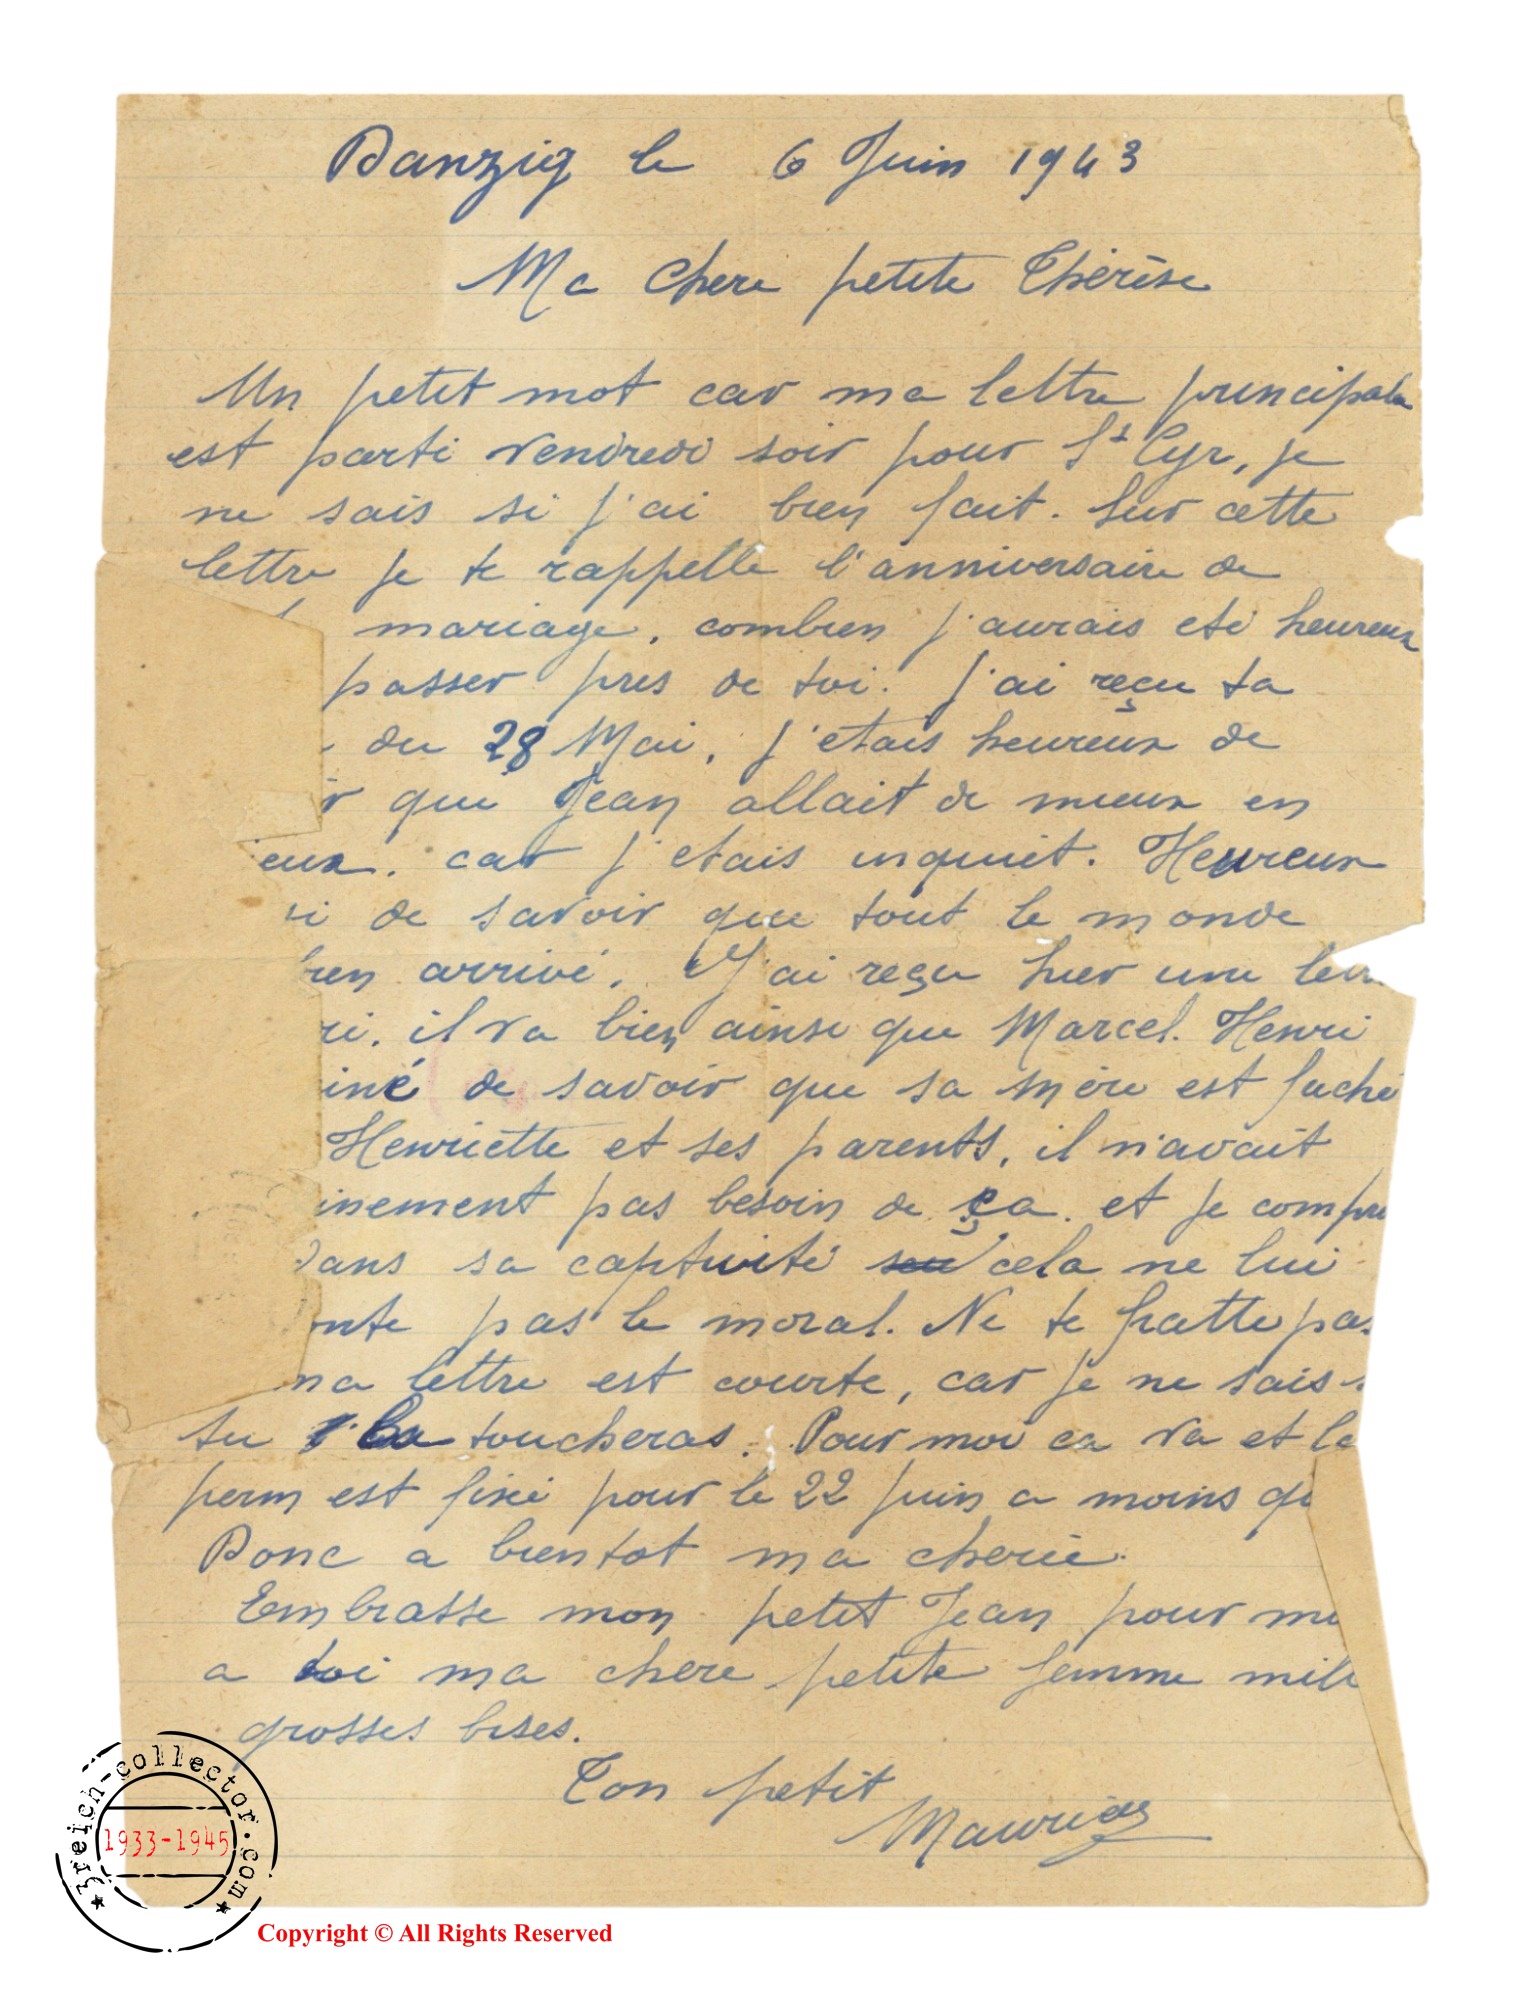 Danzig le 6 Juin 1943
Ma chere petite Thérèse
Un petit mot car ma lettre principale
est parti vendredi soir pour St Cyr, je
ne sais si j'ai bien fait. Sur cette
lettre je te rappelle l'anniversaire de
mariage, combien j'aurais eté heureux
passer pres de toi. J'ai reçu ta
du 28 Mai, j'etais heureux de
que Jean allait de mieux en
ieux, car j'etais inquiet. Heureux
si de savoir que tout le monde
ien arrivé. J'ai reçu hier une
ri, il va bien ainsi que Marcel. Henri
iné de savoir que sa mère est faché
Henriette et ses parents, il n'avait
inement pas besoin de ça et je compre
dans sa captivité cela ne lui
onte pas le moral. Ne te frappe pas
ma lettre est courte, car je ne sais
tu la toucheras. Pour moi ca va et la
perm est fixé pour le 22 juin a moins qu
Donc a bientot ma cherie.
Embrasse mon petit Jean pour m
a toi ma chere petite femme mill
grosses bises.
Ton petit
Maurice
3reich-collector.com
1933-1945
Copyright © All Rights Reserved